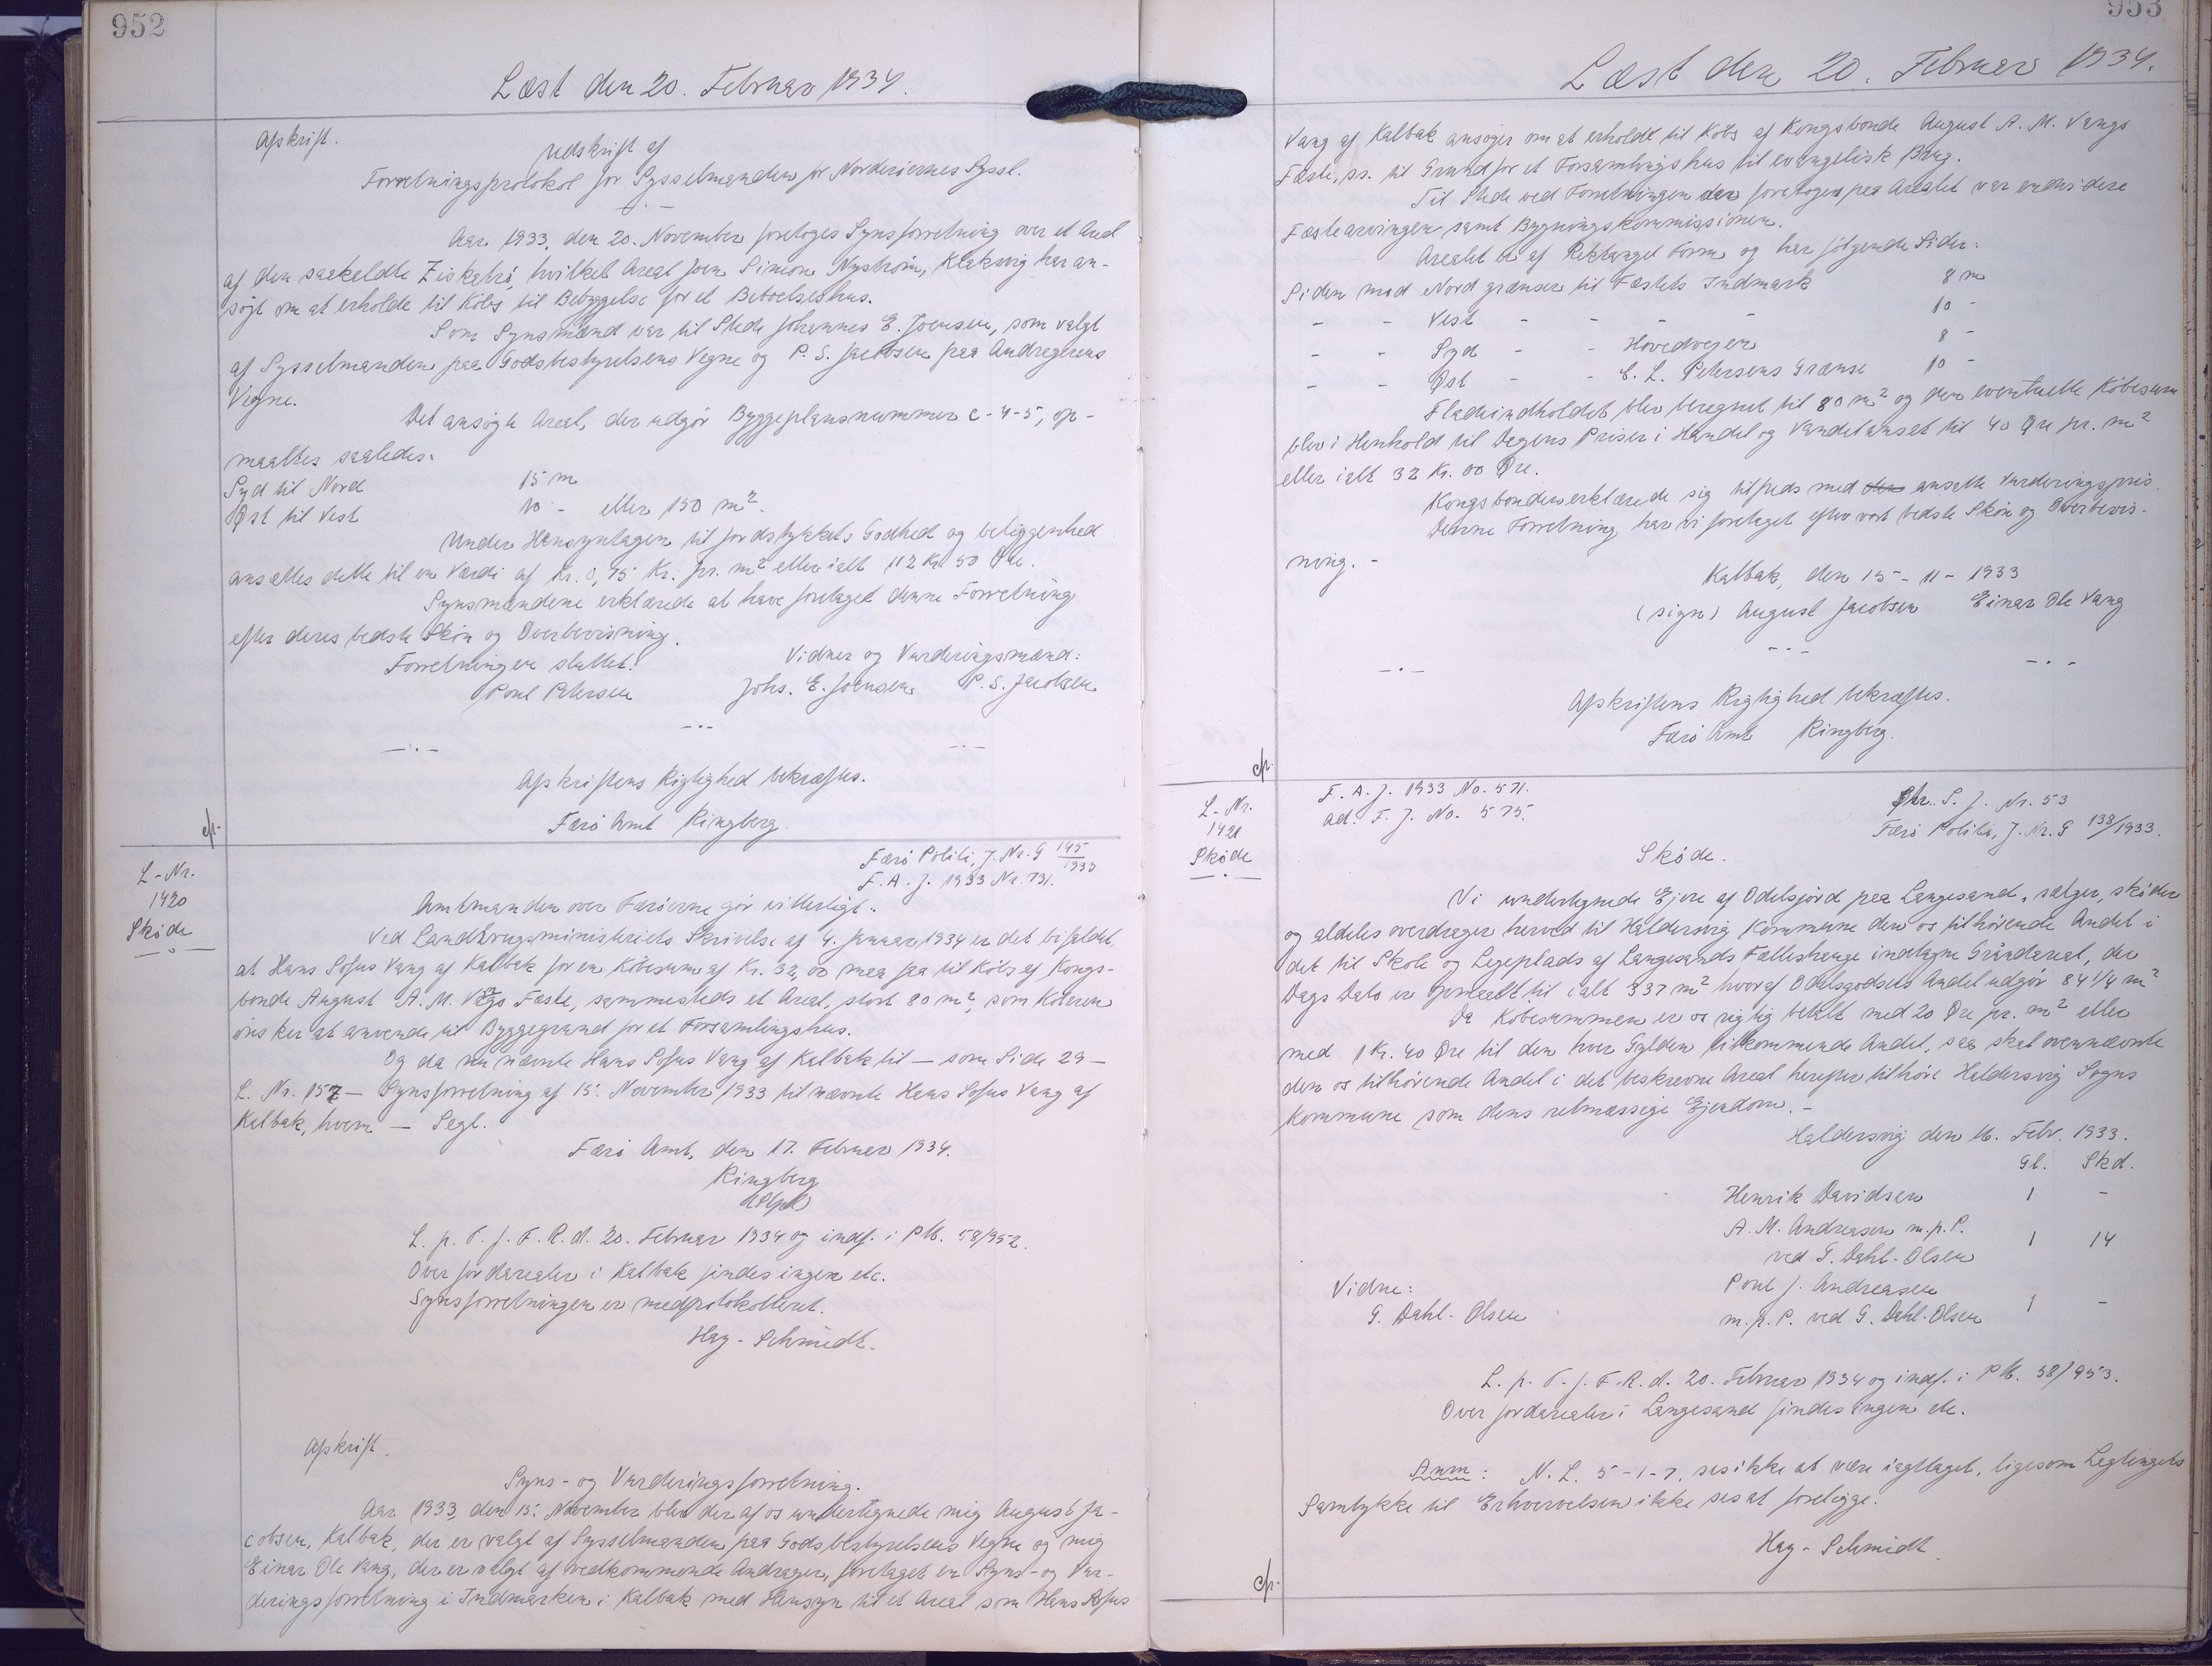 952
Læst den 20. Februar 1934.
Afskrift.
Udskrift af
Forretningsprotokol for Sysselmanden for Norderöernes Syssel.
Aar 1933, den 20. November foretoges Synsforretning over et Areal
af den saakaldte Ziskatrö, hvilket Areal Joen Simon Nyström, Klaksvig har an-
søgt om at erholde til Købs til Bebyggelse for et Betoelseshus.
Som Synsmænd var til Stede Johannes E. Joensen, som valgt
af Sysselmanden paa Godsbestyrelsens Vegne og P. S. Jacobsen paa Andragerens
Vegne.
Det ansøgte Areal, der udgør Byggeplansnummer c-4-5, op-
maaltes saaledes.
Syd til Nord 15 m
Øst til Vest 10 - eller 150 m².
Under Hensyntagen til Jordstykkets Godhed og beliggenhed
ansattes dette til en Værdi af Kr. 0,75 Kr. pr. m² eller ialt 112 Kr 50 Øre.
Synsmændene erklærede at have foretaget denne Forretning
efter deres bedste Skön og Overbevisning.
Forretningen sluttet. Vidner og Vurderingsmænd:
Poul Petersen Johs. E. Joensen P. S. Jacobsen
Afskriftens Rigtighed bekræftes.
Færö Amt Ringberg.
cfr.
L-Nr.
1420
Sköde
Færö Politi, J. Nr. G 145/1933
F. A. J. 1933 Nr. 731.
Amtmanden over Færöerne gör vitterligt:
Ved Landbrugsministeriets Skrivelse af 4. Januar 1934 er det bifaldet,
at Hans Sofus Vang af Kalbak for en Köbesum af Kr. 32,00 maa faa til Köbs af Kongs-
bonde August A. M. Vangs Fæste, sammesteds et Areal, stort 80 m², som Köberen
önsker at anvende til Byggegrund for et Forsamlingshus.
Og da nu nævnte Hans Sofus Vang af Kalbak til - som Side 29 -
L. Nr. 157 - Synsforretning af 15. November 1933 til nævnte Hans Sofus Vang af
Kalbak, hvem - Segl.
Færö Amt, den 17. Februar 1934.
Ringberg
L. p. T. f. F. R. d. 20. Februar 1934 og indf. i PM. 58/952.
Over Jordarealer i Kalbak findes ingen etc.
Synsforretningen er medprotokolleret.
Hay-Schmidt.
Afskrift.
Syns- og Vurderingsforretning.
Aar 1933, den 15. November blev der af os undertegnede mig August Ja-
cobsen, Kalbak, der er valgt af Sysselmanden paa Godsbestyrelsens Vegne og mig
Einar Ole Vang, der er valgt af vedkommende Andrager, foretaget en Syns- og Vur-
deringsforretning i Indmarken i Kalbak med Hensyn til et Areal som Hans Sofus
953
Læst den 20. Februar 1934.
Vang af Kalbak ansøger om at erholde til Köbs af Kongsbonde August A. M. Vangs
Fæste, pr. til Grund for et Forsamlingshus til evangelisk Brug.
Til Stede ved Forretningen der foretoges paa Arealet var endvidere
Fæstearvingen samt Bygningskommissionen.
Arealet er af Rektangel Form og har fölgende Sider:
Siden mod Nord grænser til Fæstets Indmark 8 m
- - Vest - - - - 10 -
- - Syd - - Hovedvejen 8 -
- - Øst - - E. L. Petersens Grænse 10 -
Fladeindholdet blev beregnet til 80 m² og den eventuelle Köbesum
blev i Henhold til Degens Priser i Handel og Vandel ansat til 40 Øre pr. m²
eller ialt 32 Kr. 00 Øre.
Kongsbonden erklærede sig tilfreds med den ansatte Vurderingspris.
Denne Forretning har vi foretaget efter vort bedste Skön og Overbevis-
ning. -
Kalbak, den 15-11-1933
(sign) August Jacobsen Einar Ole Vang
Afskriftens Rigtighed bekræftes.
Færö Amt Ringberg.
cfr.
L-Nr.
1421
Sköde
F. A. J. 1933 No. 571.
ad. F. J. No. 575.
Str. S. J. Nr. 53
Færö Politi, J. Nr. G 138/1933.
Sköde.
Vi undertegnede Ejere af Odelsjord paa Langesand, sælger, sköder
og aldeles overdrager herved til Haldersvig Kommune den os tilhörende Andel i
det til Skole og Legeplads af Langesands Fælleshauge indtagne Grundareal, der
Dags Dato er opmaalt til ialt 337 m² hvoraf Odelsgodsets Andel udgör 84 1/4 m²
Da Köbesummen er os rigtig betalt med 20 Øre pr. m² eller
med 1 Kr. 40 Øre til den hver Gylden tilkommende Andel, saa skal ovennævnte
den os tilhörende Andel i det beskrevne Areal herefter tilhöre Haldersvig Sogns
Kommune som dens retmæssige Ejendom. -
Haldersvig den 16. Febr. 1933.
Gl. Skd.
Henrik Davidsen 1 -
A. M. Andreasen m.p.P.
ved G. Dahl-Olsen 1 14
Vidne: Poul J. Andreasen
G. Dahl-Olsen m.p.P. ved G. Dahl-Olsen 1 -
L. p. T. f. F. R. d. 20. Februar 1934 og indf. i PM. 58/953.
Over Jordarealer i Langesand findes ingen etc.
Anm: N. L. 5-1-7, ses ikke at være iagttaget, ligesom Lagtingets
Samtykke til Erhvervelsen ikke ses at foreligge.
Hay-Schmidt.
cfr.